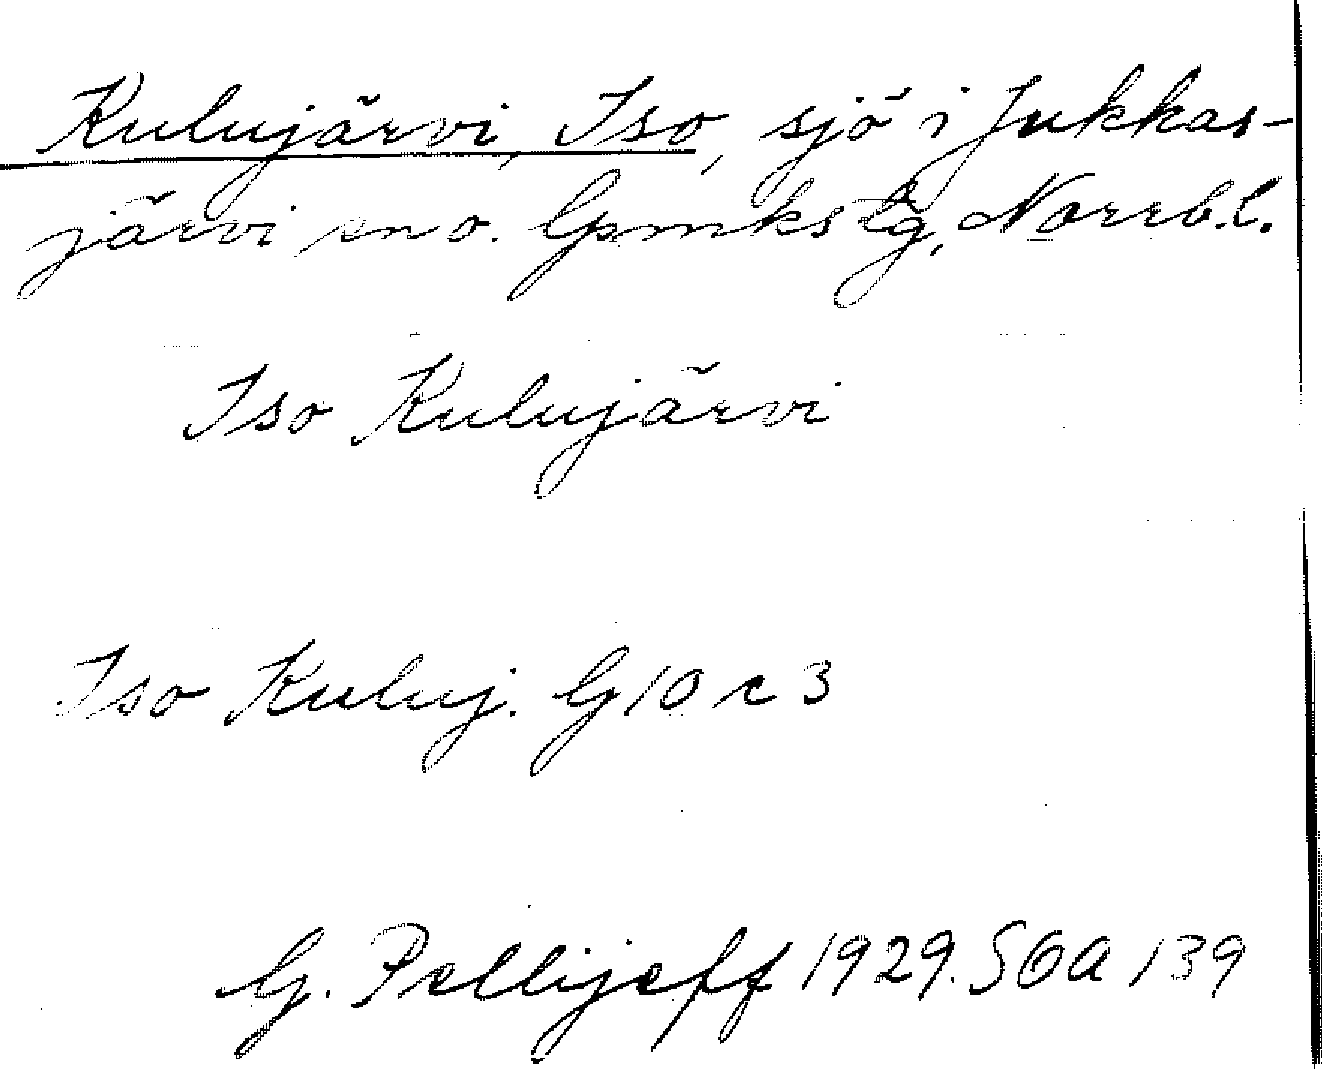 Kulujärvi, Iso, sjö i Jukkas-
järvi sn o. Gmkslg, Norrb.l.
Iso Kulujärvi
Iso Kuluj. G 10 c 3
G. Pellijeff 1929. SOA 139